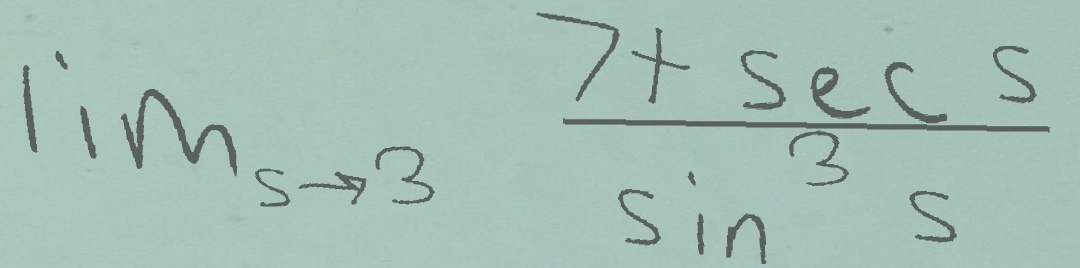 lim_{s→3} \frac{7+sec s}{sin^3 s}